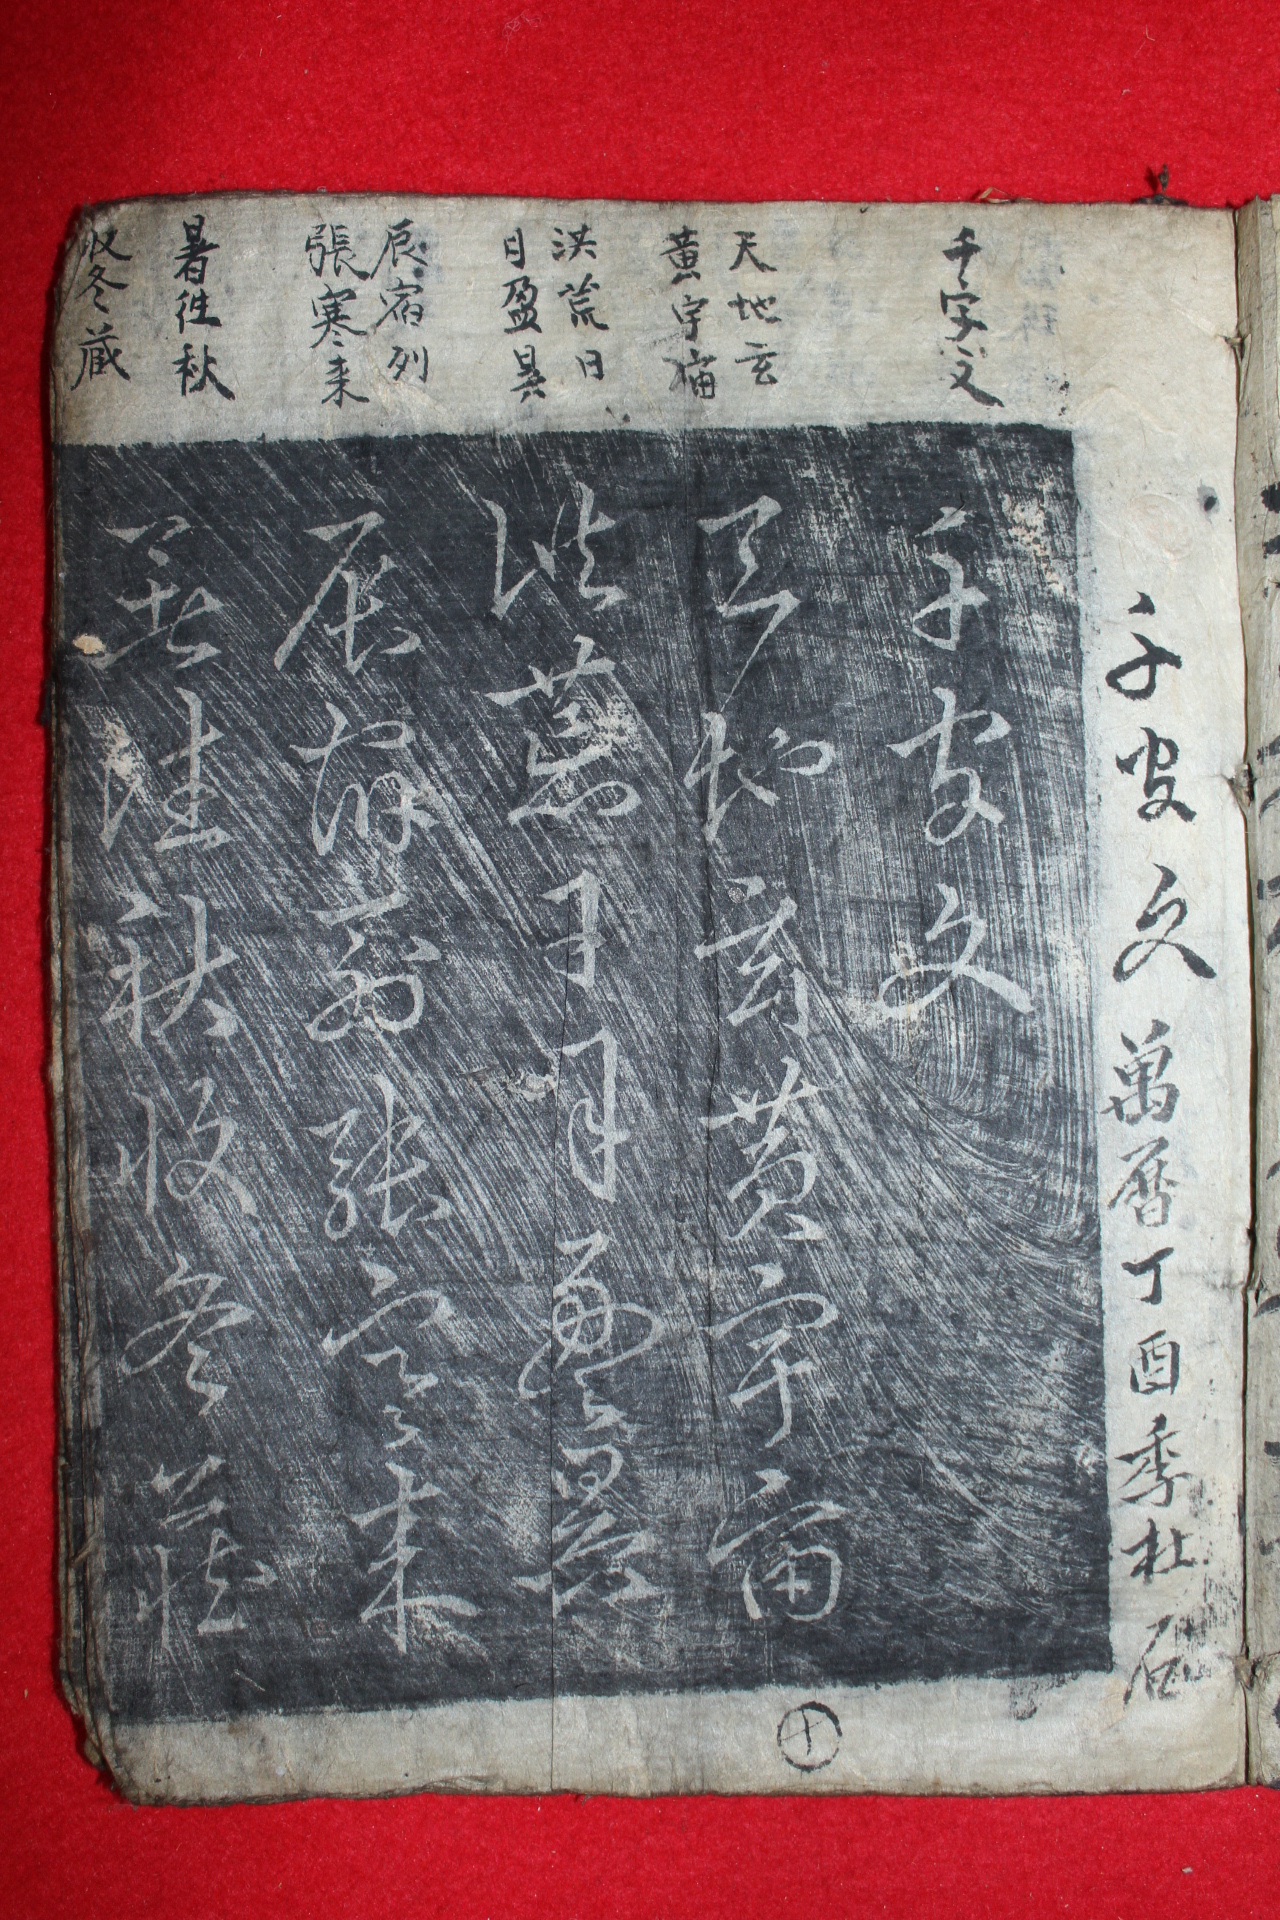 千字文
天地玄
黃宇宙
洪荒日
月盈昃
辰宿列
張寒来
暑往秋
收冬藏
千字文萬曆丁酉季
千字文
天地玄黃宇宙
洪荒日月盈昃
辰宿列張寒来
暑往秋收冬藏
十